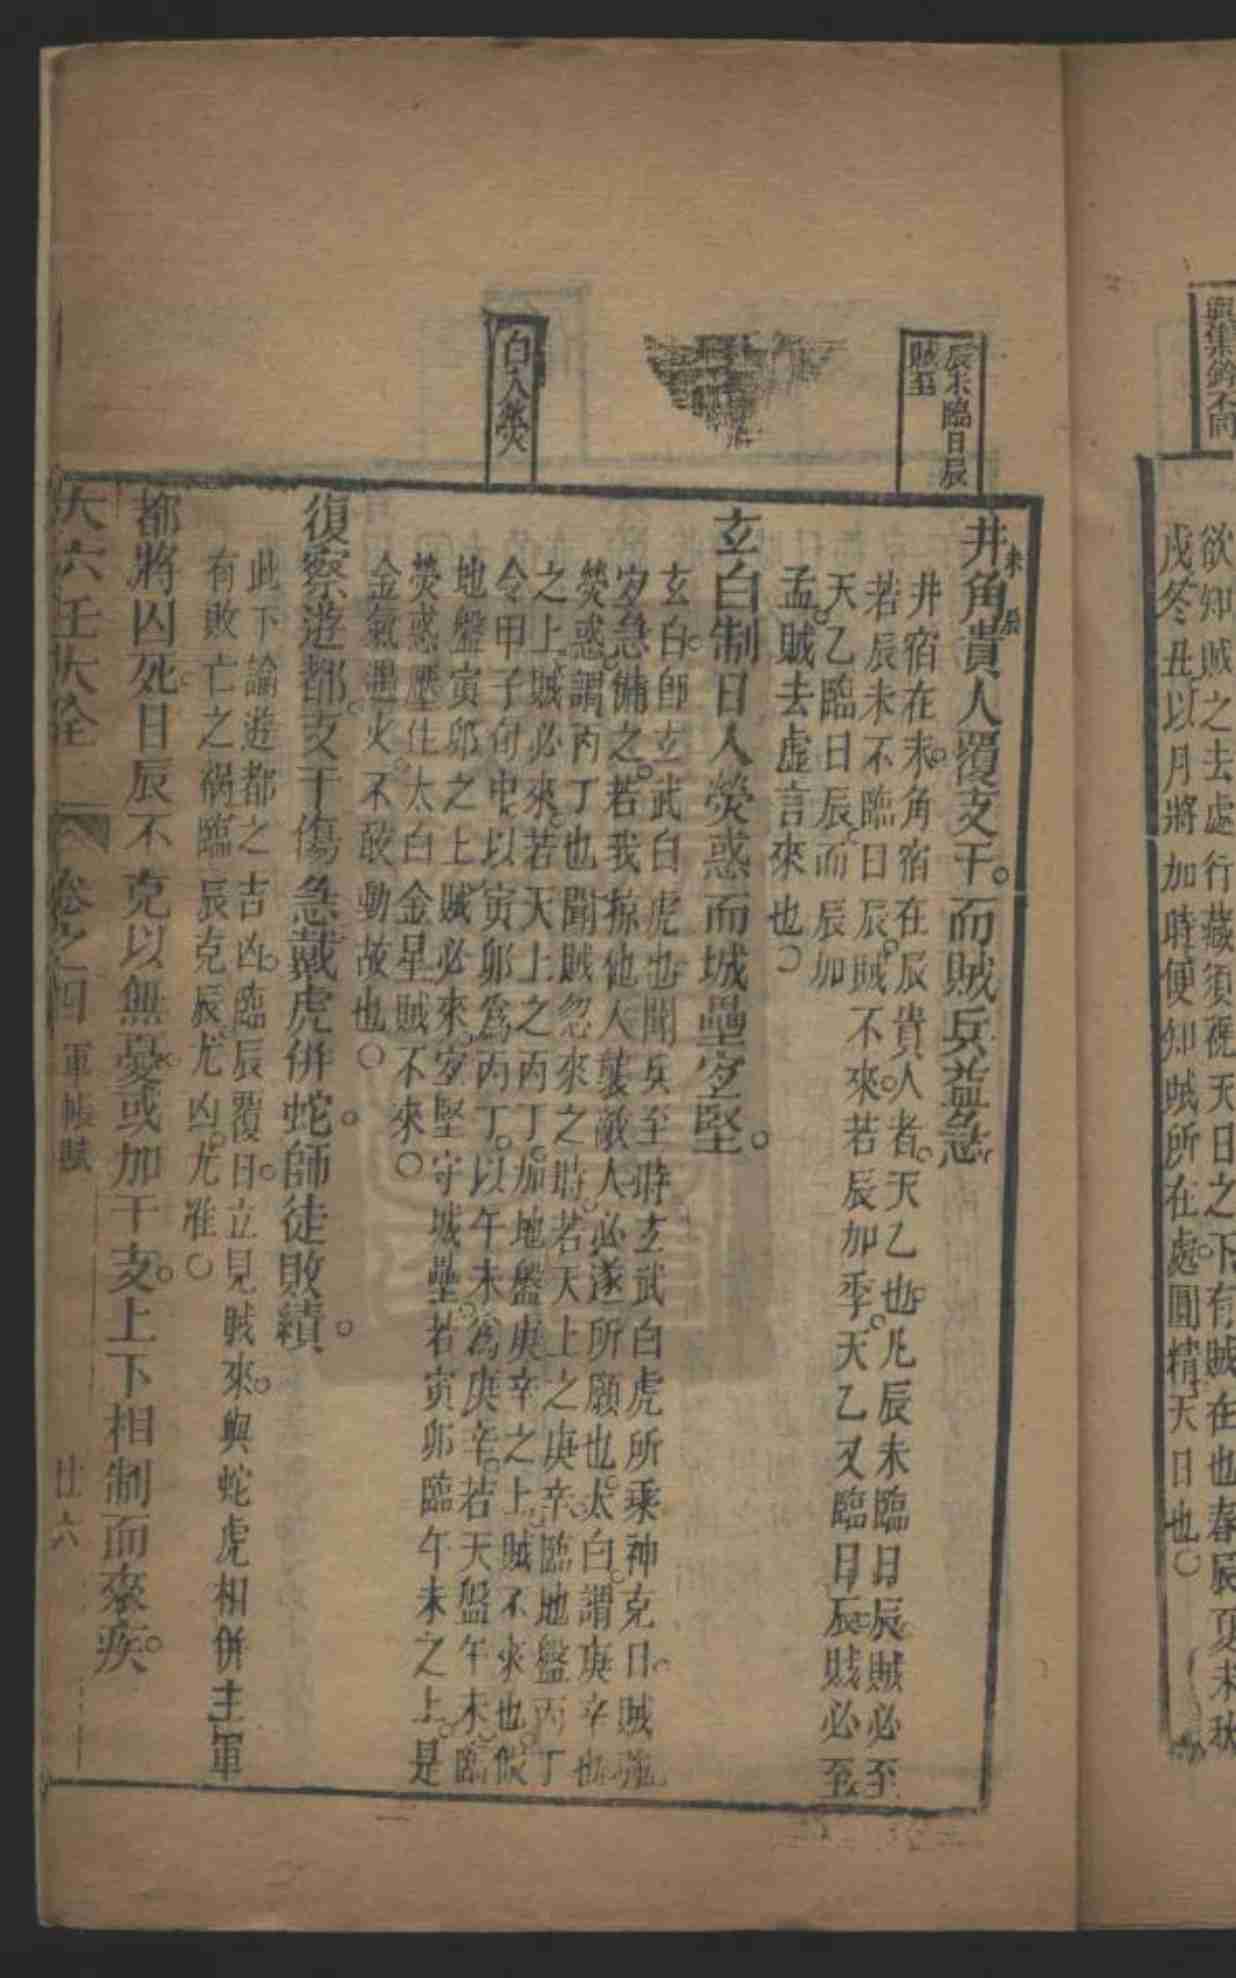 與集鈐不同
欲知賊之去處行藏須視天日之下有賊在也春辰夏未秋
戌冬丑以月將加時便知賊所在處圓精天日也
辰未臨日辰
賊至
井未角辰貴人覆支干而賊兵益急
井宿在未角宿在辰貴人者天乙也凡辰未臨日辰賊必至
若辰未不臨日辰賊不來若辰加季天乙又臨日辰賊必至
天乙臨日辰而辰加
孟賊去虛言來也
玄白制日入熒惑而城壘宜堅
玄白卽玄武白虎也聞兵至時玄武白虎所乘神克日賊強
宜急備之若我掠他人襲敵人必遂所願也太白謂庚辛也
熒惑謂丙丁也聞賊忽來之時若天上之庚辛臨地盤丙丁
之上賊必來若天上之丙丁加地盤庚辛之上賊不來也假
令甲子旬中以寅卯爲丙丁以午未爲庚辛若天盤午未臨
地盤寅卯之上賊必來宜堅守城壘若寅卯臨午未之上是
熒惑壓住太白金星賊不來
金氣遇火不敢動故也
白入熒
復察遊都支干傷急戴虎併蛇師徒敗績
此下論遊都之吉凶臨辰覆日立見賊來與蛇虎相併主軍
有敗亡之禍臨辰克辰尤凶尤准
都將囚死日辰不克以無憂或加干支上下相制而來疾
大六壬大全 卷之四 軍帳賦 廿六